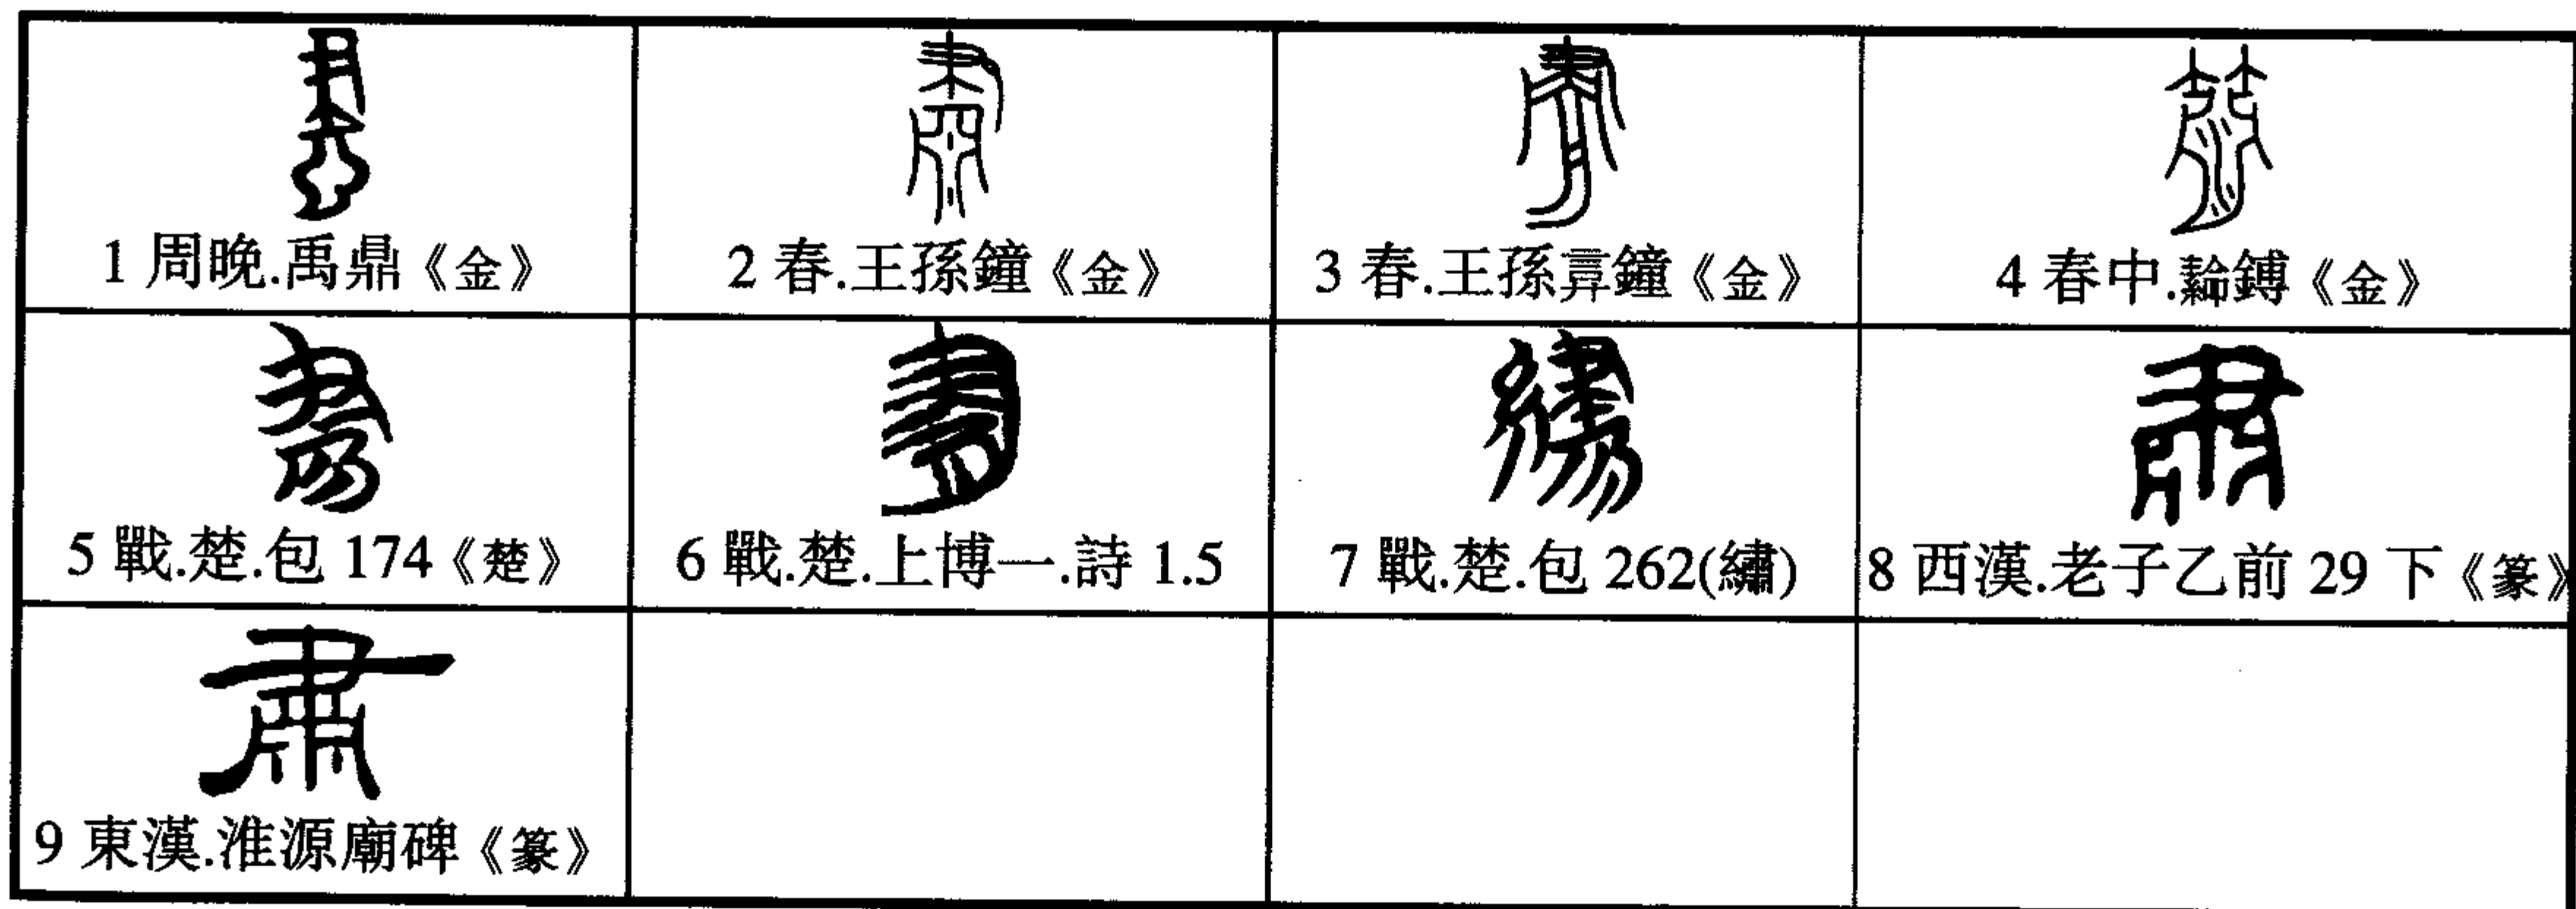 1 周晚.禹鼎《金》
2 春.王孫鐘《金》
3 春.王孫鐘《金》
4 春中.鎛《金》
5 戰.楚.包 174《楚》
6 戰.楚.上博一.詩 1.5
7 戰.楚.包 262(繡)
8 西漢.老子乙前 29 下《篆》
9 東漢.淮源廟碑《篆》